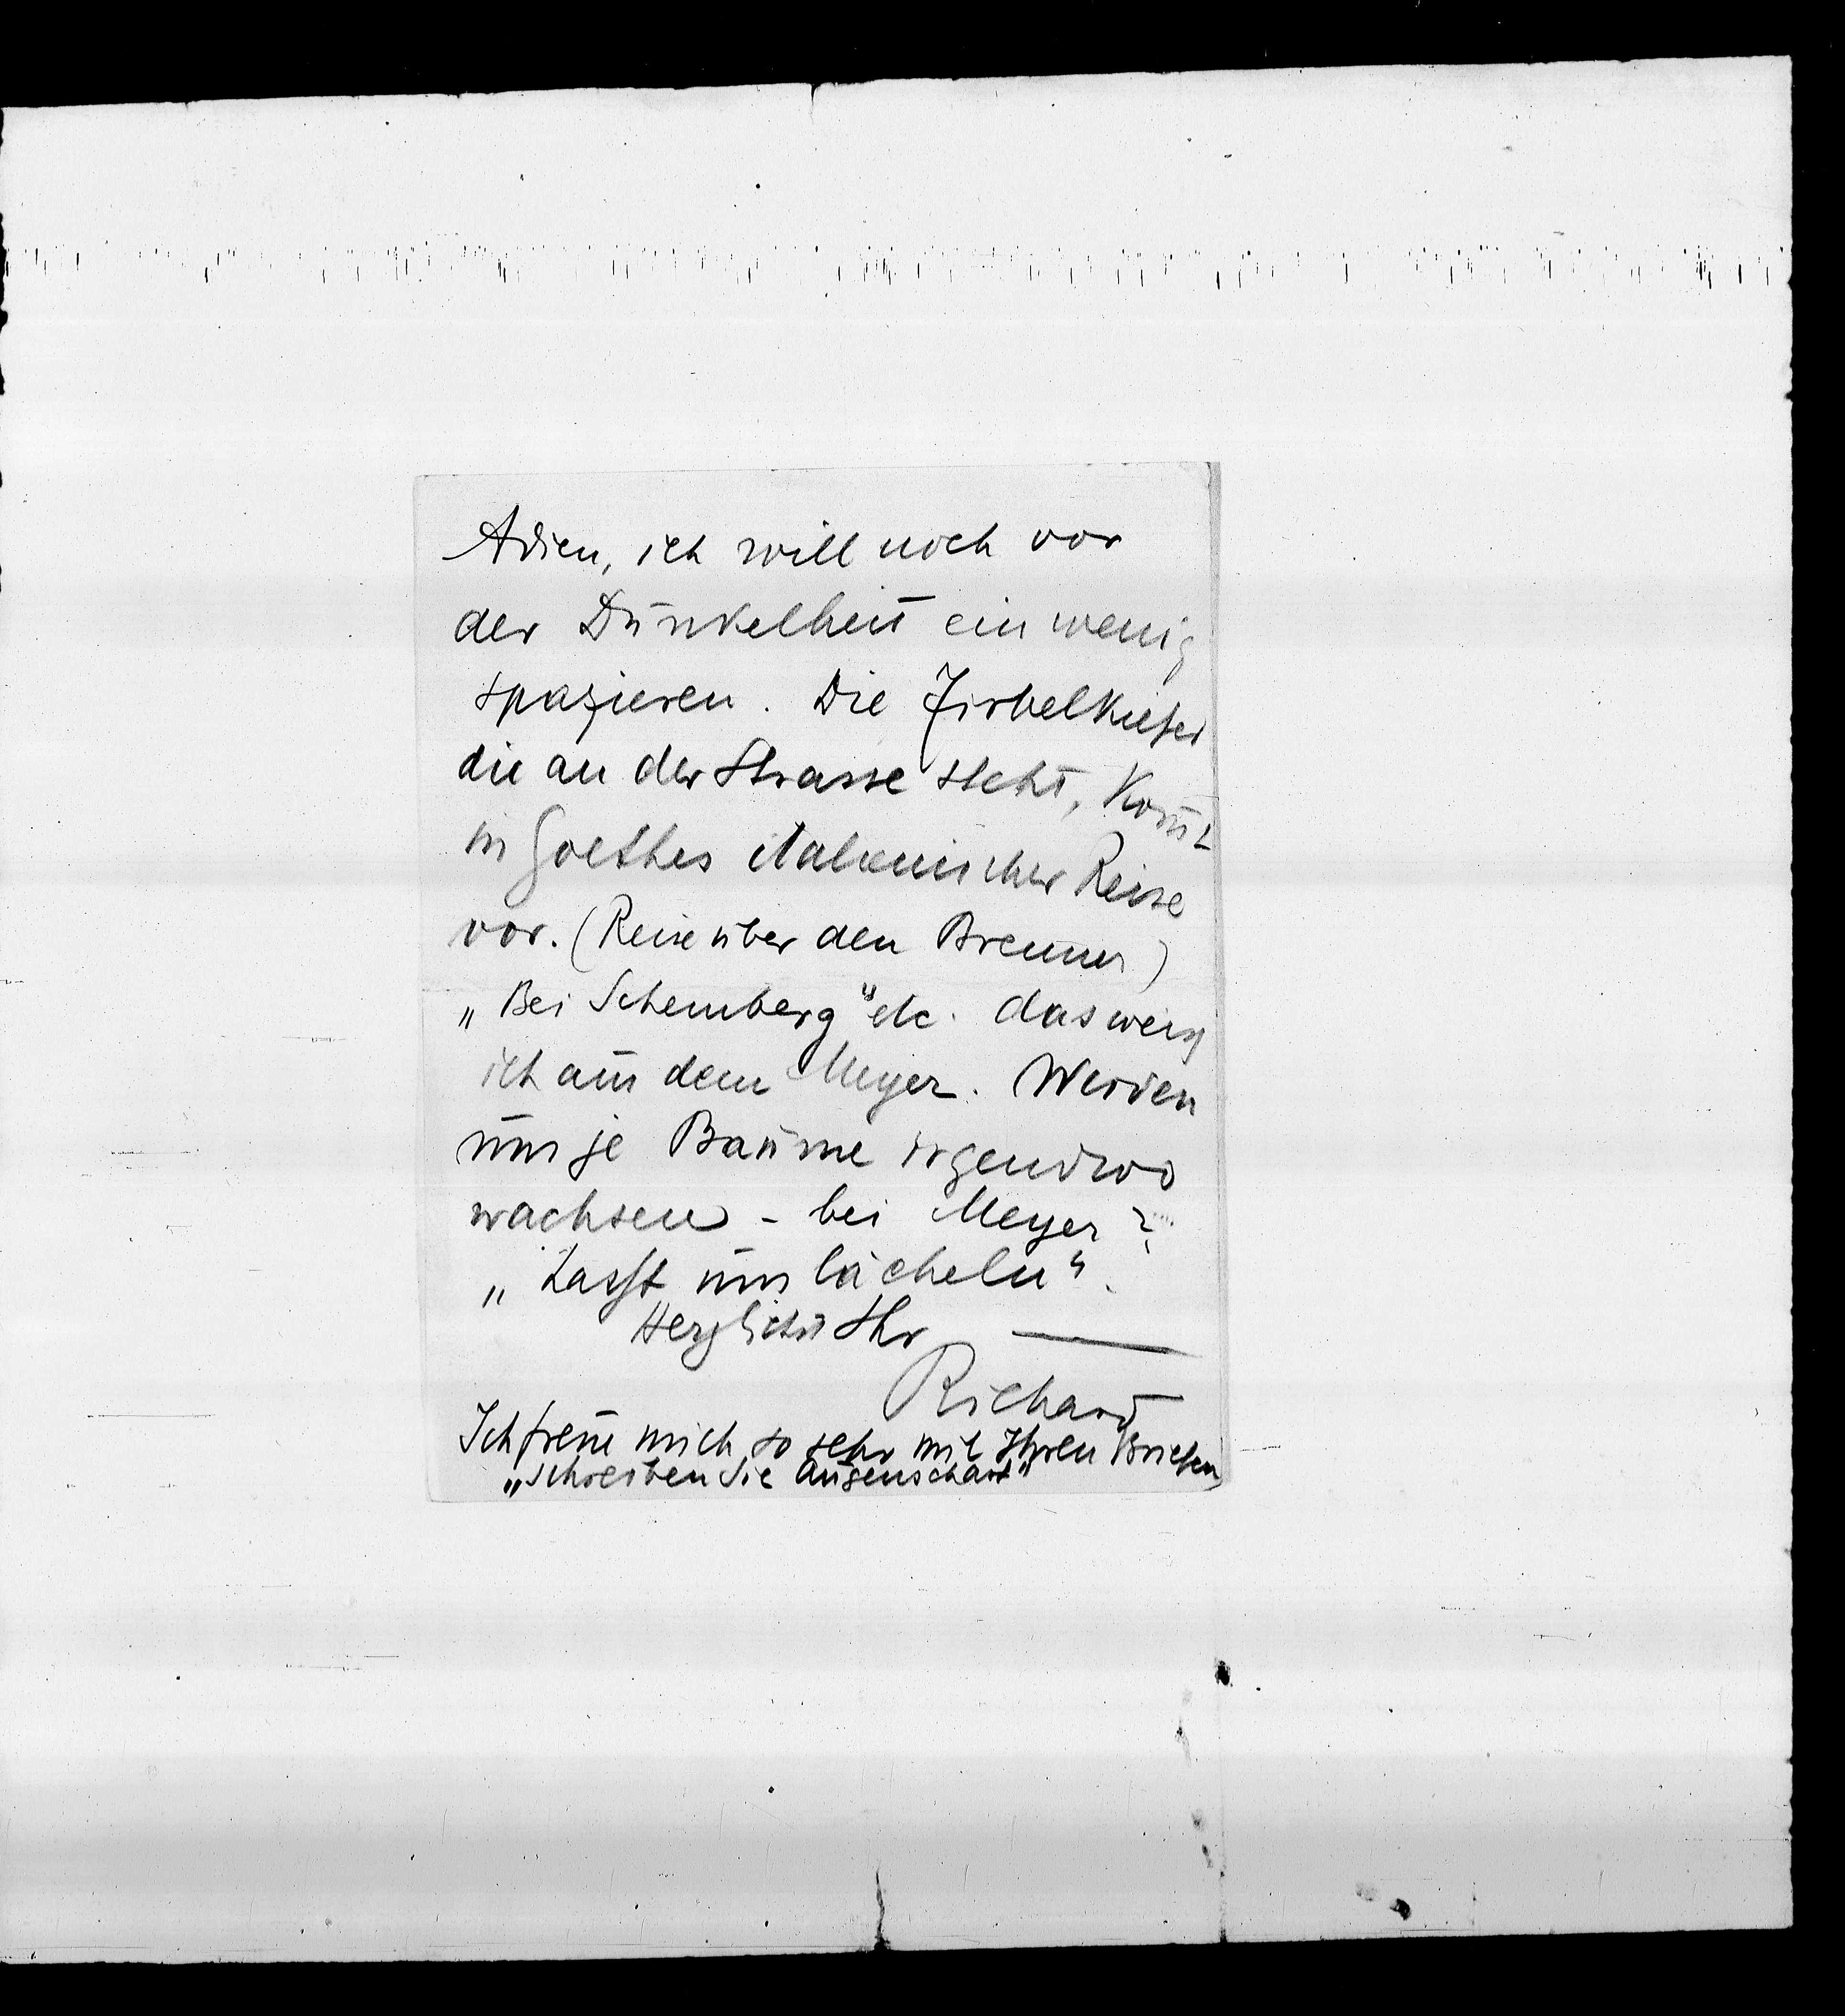 Adieu, ich will noch vor
der Dunkelheit ein wenig
spazieren. Die Zirbelkiefer
die an der Strasse steht, kom̄t
in Goethes italienischer Reise
vor. (Reise über den Brenner)
„Bei Schemberg“ etc. das weiß
ich aus dem Meyer. Werden
uns je Bäume irgendwo
wachsen – bei Meyer?
„Lasst uns lächeln“.
Herzlichst Ihr
Richard
Ich freue mich so sehr mit Ihren Briefen
„schreiben Sie